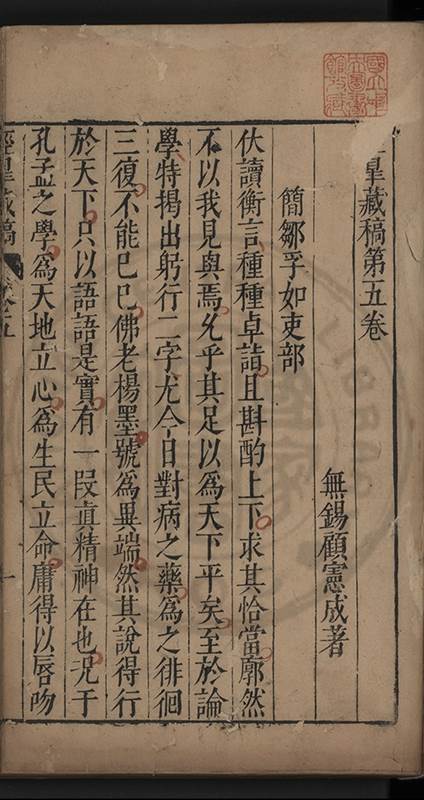 皐藏稿第五卷
無錫顧憲成著
簡鄒孚如吏部
伏讀衡言種種卓詣且斟酌上下求其恰當廓然
不以我見與焉允乎其足以為天下平矣至於論
學特揭出躬行二字尤今日對病之藥為之徘徊
三復不能已已佛老楊墨號為異端然其說得行
於天下只以語語是實有一段真精神在也況于
孔孟之學為天地立心為生民立命庸得以唇吻
涇皐藏稿 卷之五 一
國立中央圖書館收藏